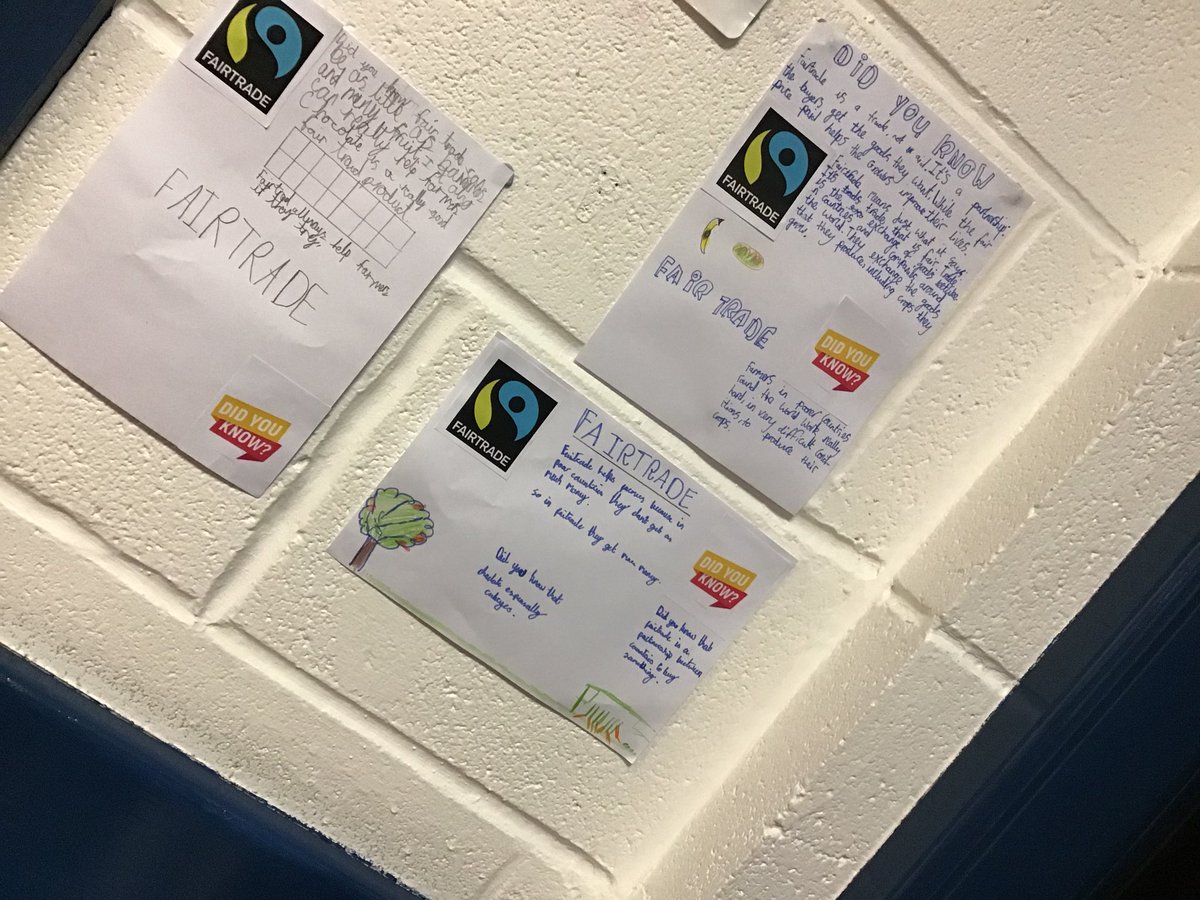 FAIRTRADE
Did you know fair trade
be as little as
and many fruit
can really help farmers
Chocolate is a really good
fair trade product
Fairtrade always help farmers
if they
FAIRTRADE
DID YOU
KNOW?
DID YOU KNOW
Fairtrade is a trade, not an aid. It's a partnership:
the buyers, get the goods they want. While the fair
price paid helps the Growers improve their lives.
FAIRTRADE
Fairtrade means just what it says
it's trade that is fair. Trade
is the exchange of goods between
countries and companies around
the world. They exchange the goods
that they produce, including crops they
grow.
FAIR TRADE
DID YOU
KNOW?
Farmers in poorer countries
round the world work really
hard, in very difficult cond-
itions, to produce their
crops.
FAIRTRADE
FAIRTRADE
Fairtrade helps because in
poor countries they dont get as
much money.
so in fairtrade they get more money.
Did you know that
especially
DID YOU
KNOW?
Did you know that
fairtrade is a
partnership between
countries to buy
something.